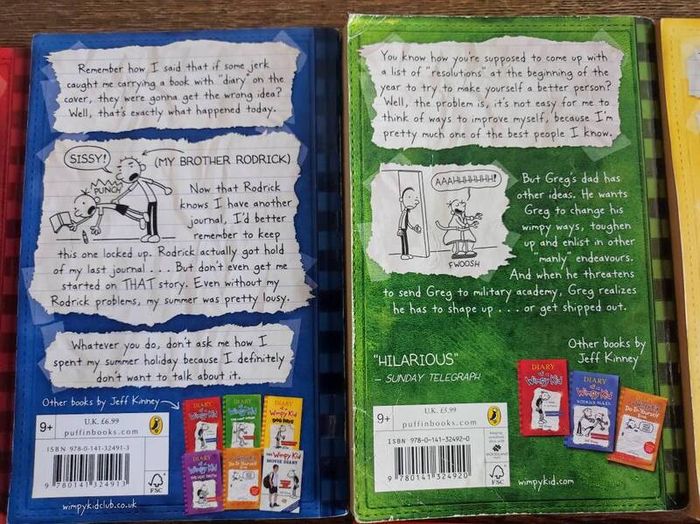 Remember how I said that if some jerk
caught me carrying a book with "diary" on the
cover, they were gonna get the wrong idea?
Well, that's exactly what happened today.
SISSY!
(MY BROTHER RODRICK)
PUNCH
Now that Rodrick
knows I have another
journal, I'd better
remember to keep
this one locked up. Rodrick actually got hold
of my last journal . . . But don't even get me
started on THAT story. Even without my
Rodrick problems, my summer was pretty lousy.
Whatever you do, don't ask me how I
spent my summer holiday because I definitely
don't want to talk about it.
Other books by Jeff Kinney
9+
U.K. £6.99
puffinbooks.com
ISBN 978-0-141-32491-3
9 780141 324913
FSC
wimpykidclub.co.uk
DIARY
of a
Wimpy Kid
Wimpy Kid
Wimpy Kid
DOG DAYS
DIARY
of a
Wimpy Kid
Wimpy Kid
MOVIE DIARY
You know how you're supposed to come up with
a list of "resolutions" at the beginning of the
year to try to make yourself a better person?
Well, the problem is, it's not easy for me to
think of ways to improve myself, because I'm
pretty much one of the best people I know.
FWOOSH
But Greg's dad has
other ideas. He wants
Greg to change his
wimpy ways, toughen
up and enlist in other
"manly" endeavours.
And when he threatens
to send Greg to military academy, Greg realizes
he has to shape up . . . or get shipped out.
"HILARIOUS"
– SUNDAY TELEGRAPH
Other books by
Jeff Kinney
9+
U.K. £5.99
puffinbooks.com
ISBN 978-0-141-32492-0
9 780141 324920
FSC
DIARY
of a
Wimpy Kid
DIARY
of a
Wimpy Kid
RODRICK RULES
Do-It-Yourself
wimpykid.com